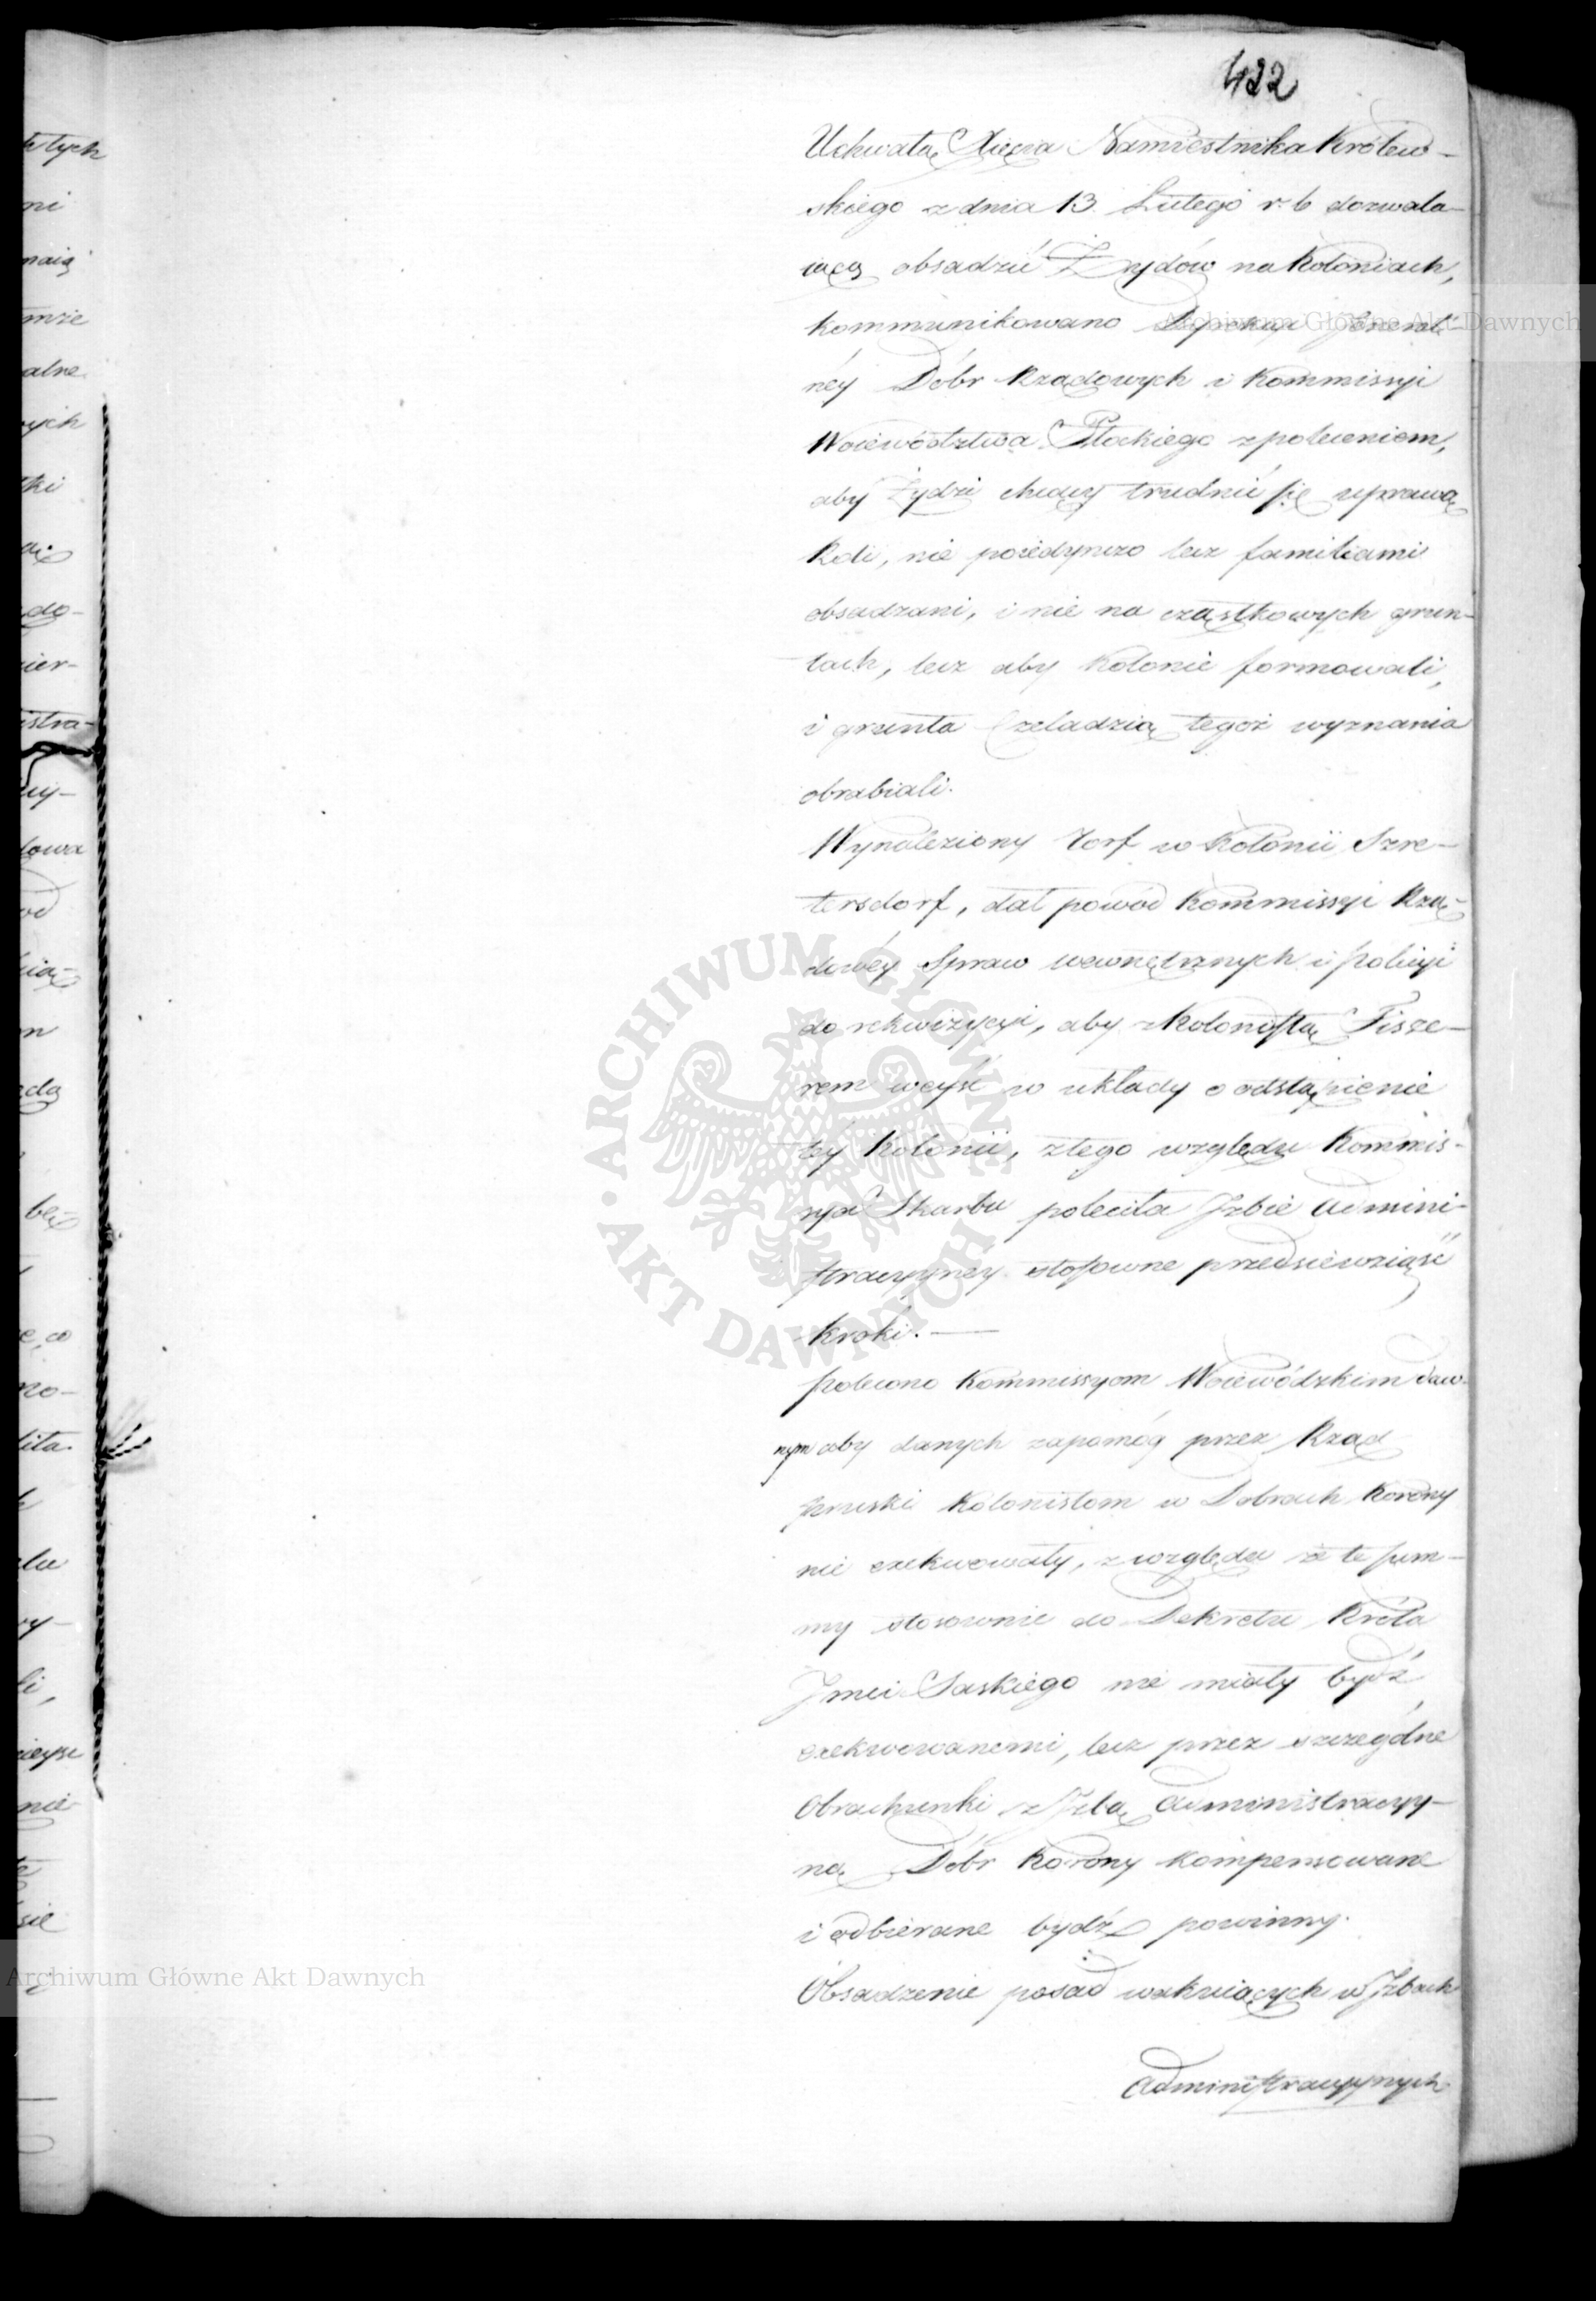 422
Uchwałę Xięcia Namiestnika Królew-
skiego z dnia 13 Lutego r. b dozwala-
iącą obsadzić Żydów na Koloniach,
kommunikowano Dyrekcyi Jeneral-
néy Dóbr Rządowych i Kommissyi
Woiewództwa Płockiego z poleceniem,
aby Żydzi chcący trudnić się uprawą
Roli, nie poiedynczo lecz familiami
obsadzani, i nie na cząstkowych grun-
tach, lecz aby Kolonie formowali,
i grunta Czeladzią tegoż wyznania
obrabiali.
Wynaleziony Torf w Kolonii Szre-
tersdorf, dał powód Kommissyi Rzą-
dowéy Spraw wewnętrznych i policyi
do rekwizycyi, aby z Kolonistą Fisze-
rem weyść w układy o odstąpienie
téy Kolonii, z tego względu Kommis-
syia Skarbu poleciła Izbie Admini-
stracyynéy stosowne przedsiewziąść
kroki. —
polecono Kommissyom Woiewódzkim daw-
nym aby danych zapomóg przez Rząd
pruski Kolonistom w Dobrach Korony
nie exekwowały, z względu że te sum-
my stosownie do Dekretu Króla
Jmci Saskiego nie miały bydź
exekwowanemi, lecz przez szczególne
Obrachunki z Izbą Administracyy-
ną Dóbr Korony kompensowane
i odbierane bydź powinny.
Obsadzenie posad wakuiących w Izbach
Administracyynych
tych
ni
maią
alne
ych
do-
istra-
wy-
bę-
no-
nie
się
ARCHIWUM GŁÓWNE AKT DAWNYCH
Archiwum Główne Akt Dawnych
Archiwum Główne Akt Dawnych